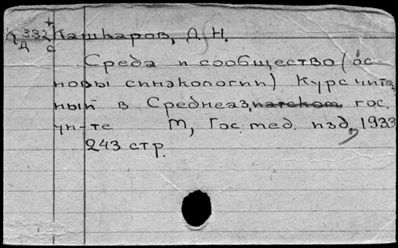 +
332 Кашкаров, Д. Н.
Д с
Среда и сообщество (ос
новы синэкологии) Курс читан
ный в Среднеаз<s>иатском</s> гос.
ун-те М, Гос. мед. изд, 1933
243 стр.